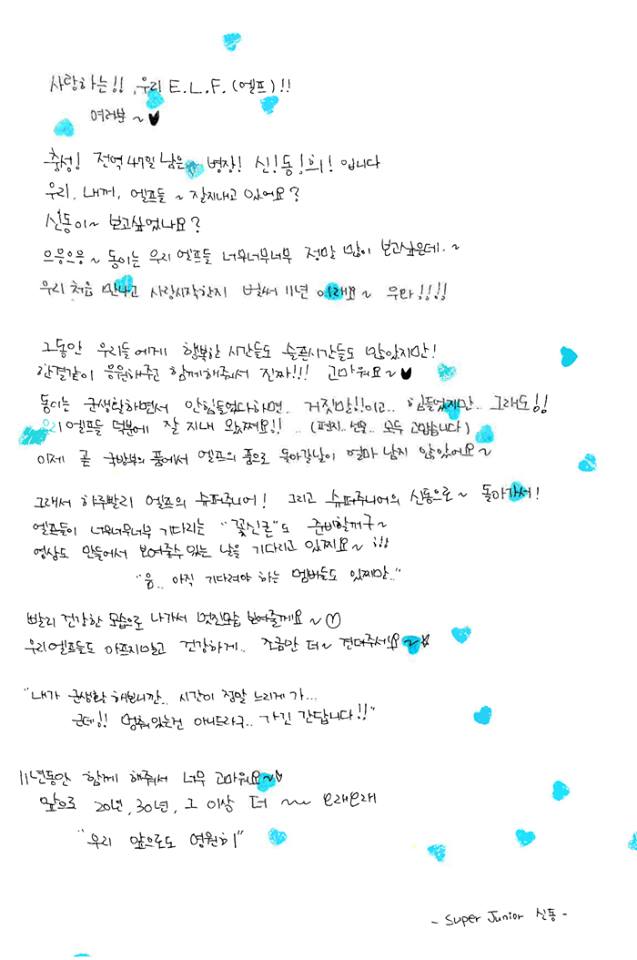 사랑하는!! 우리 E.L.F.(엘프)!!
여러분~♥
충성! 전역 47일 남은~ 병장! 신!동!희! 입니다
우리, 내꺼, 엘프들~ 잘지내고 있어요?
신동이~ 보고싶었나요?
으응으응~ 동이는 우리 엘프들 너무너무너무 정말 많이 보고싶은데.~
우리 처음 만나고 사랑시작한지 벌써 11년 이래요~ 우와!!!!
그동안 우리들에게 행복한 시간들도 슬픈시간들도 많았지만!
한결같이 응원해주고 함께해줘서 진짜!!! 고마워요~♥
동이는 군생활하면서 안힘들었다하면.. 거짓말!!이고.. 힘들었지만.. 그래도!!
우리엘프들 덕분에 잘 지내 왔쩌요!! .. (편지.. 선물.. 모두 고맙습니다)
이제 곧 국방부의 품에서 엘프의 품으로 돌아갈날이 얼마 남지 않았어요~
그래서 하루빨리 엘프의 슈퍼주니어! 그리고 슈퍼주니어의 신동으로~ 돌아가서!
엘프들이 너무너무너무 기다리는 "꽃신콘"도 준비할꺼구~
영상도 만들어서 보여줄수 있는 날을 기다리고 있찌요~!!!
"음.. 아직 기다려야 하는 멤버들도 있찌만.."
빨리 건강한 모습으로 나가서 멋진모습 보여줄께요~♡
우리엘프들도 아프지말고 건강하게.. 조금만 더~ 견뎌주세요~♥
"내가 군생활 해보니깐.. 시간이 정말 느리게 가...
근데!! 멈춰있는건 아니드라구.. 가긴 간답니다!!"
11년동안 함께 해줘서 너무 고마워요~♥
앞으로 20년, 30년, 그 이상 더 ~~ 오래오래
"우리 앞으로도 영원히"
- Super Junior 신동 -